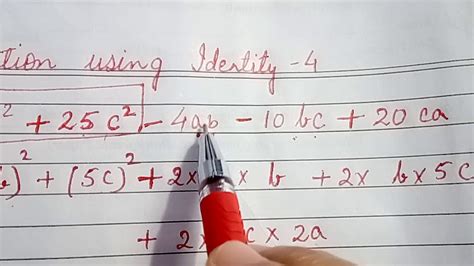 tion using Identity-4
² + 25c² - 4ab - 10bc + 20ca
)² + (5c)² + 2x x b + 2x bx5c
+ 2x c x 2a